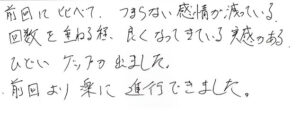 前回に比べて、つまらない感情が減っている。
回数を重ねる程、良くなってきている実感がある。
ひどいゲップが出ました。
前回より楽に進行できました。